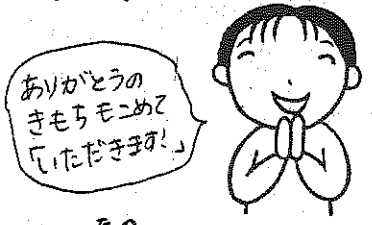 ありがとうの
きもちもこめて
「いただきます!」